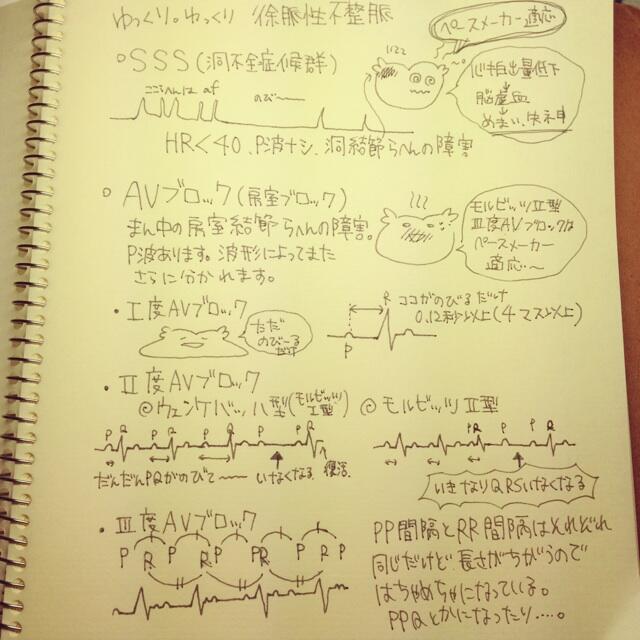 ゆっくり。ゆっくり 徐脈性不整脈
ペースメーカー適応
○SSS(洞不全症候群)
ここらへんは af
のび〜〜
心拍出量低下
↓
脳虚血
↓
めまい、失神
HR<40、P波ナシ、洞結節らへんの障害
○AVブロック(房室ブロック)
まん中の房室結節らへんの障害。
P波あります。波形によってまた
さらに分かれます。
モルビッツⅡ型
Ⅲ度AVブロックは
ペースメーカー
適応〜
・Ⅰ度AVブロック
ただ
のびーる
だけ
R ココがのびるだけ
0.12秒以上(4マス以上)
P
・Ⅱ度AVブロック
◎ウェンケバッハ型(モルビッツⅠ型) ◎モルビッツⅡ型
P Q P Q P Q P R
PR P P R
だんだんPQがのびて〜〜 いなくなる 復活。
いきなりQRSいなくなる
・Ⅲ度AVブロック
P P P PR P R P
R R
PP間隔とRR間隔はそれぞれ
同じだけど長さがちがうので
はちゃめちゃになっている。
PPQとかになったり…。